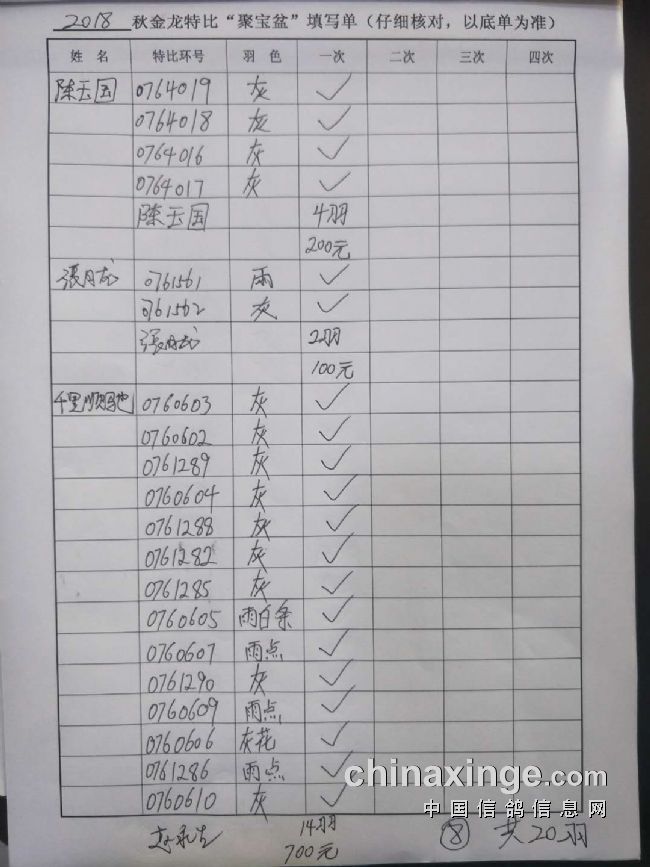 2018 秋金龙特比“聚宝盆”填写单（仔细核对，以底单为准）
姓 名 特比环号 羽 色 一次 二次 三次 四次
陈玉国 0764019 灰 ✓
0764018 灰 ✓
0764016 灰 ✓
0764017 灰 ✓
陈玉国 4羽
200元
張月龙 0761561 雨 ✓
0761562 灰 ✓
張月龙 2羽
100元
千里顺驰 0760603 灰 ✓
0760602 灰 ✓
0761289 灰 ✓
0760604 灰 ✓
0761288 灰 ✓
0761282 灰 ✓
0761285 灰 ✓
0760605 雨白条 ✓
0760607 雨点 ✓
0761290 灰 ✓
0760609 雨点 ✓
0760606 灰花 ✓
0761286 雨点 ✓
0760610 灰 ✓
14羽
700元
⑧ 共20羽
chinaxinge.com
中国信鸽信息网